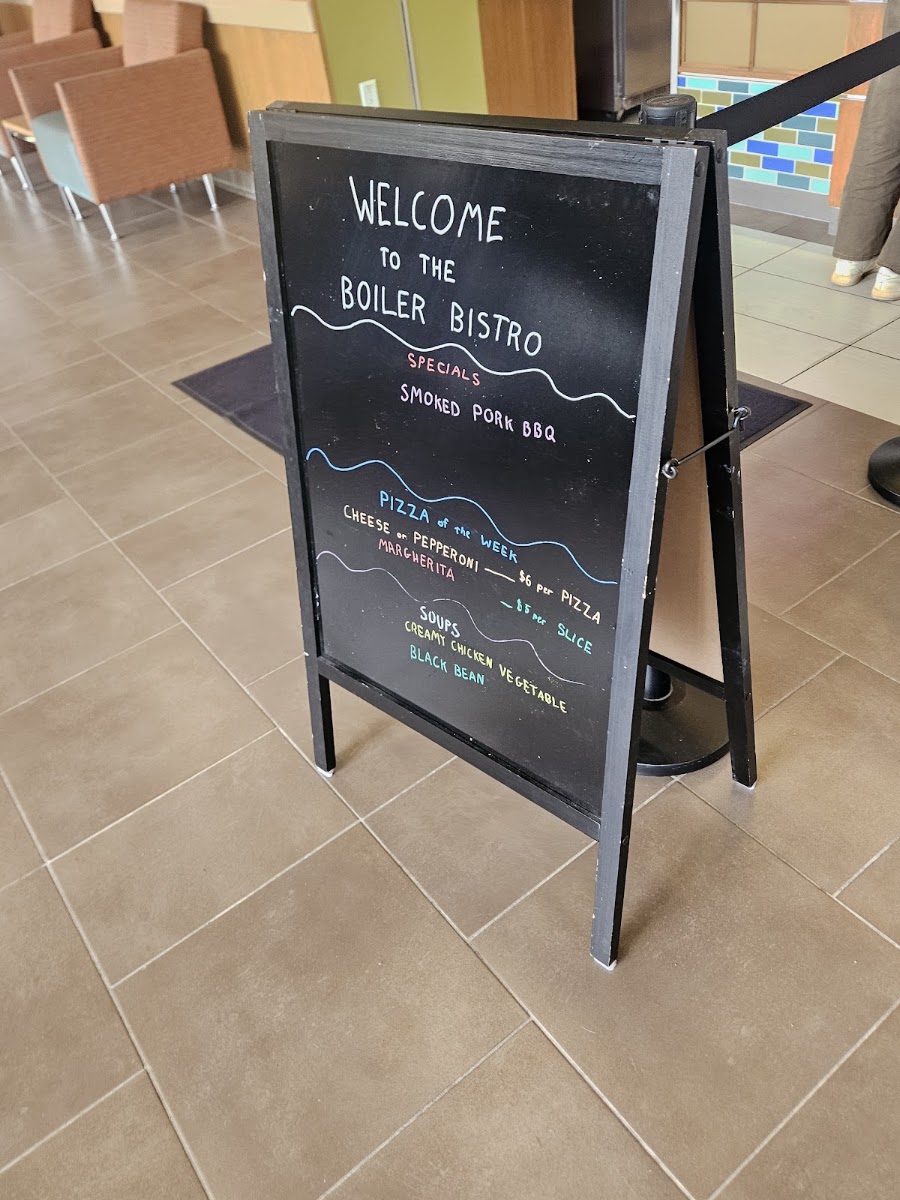 WELCOME
TO THE
BOILER BISTRO
SPECIALS
SMOKED PORK BBQ
PIZZA of the WEEK
CHEESE or PEPPERONI — $6 per PIZZA
MARGHERITA
— $5 per SLICE
SOUPS
CREAMY CHICKEN VEGETABLE
BLACK BEAN